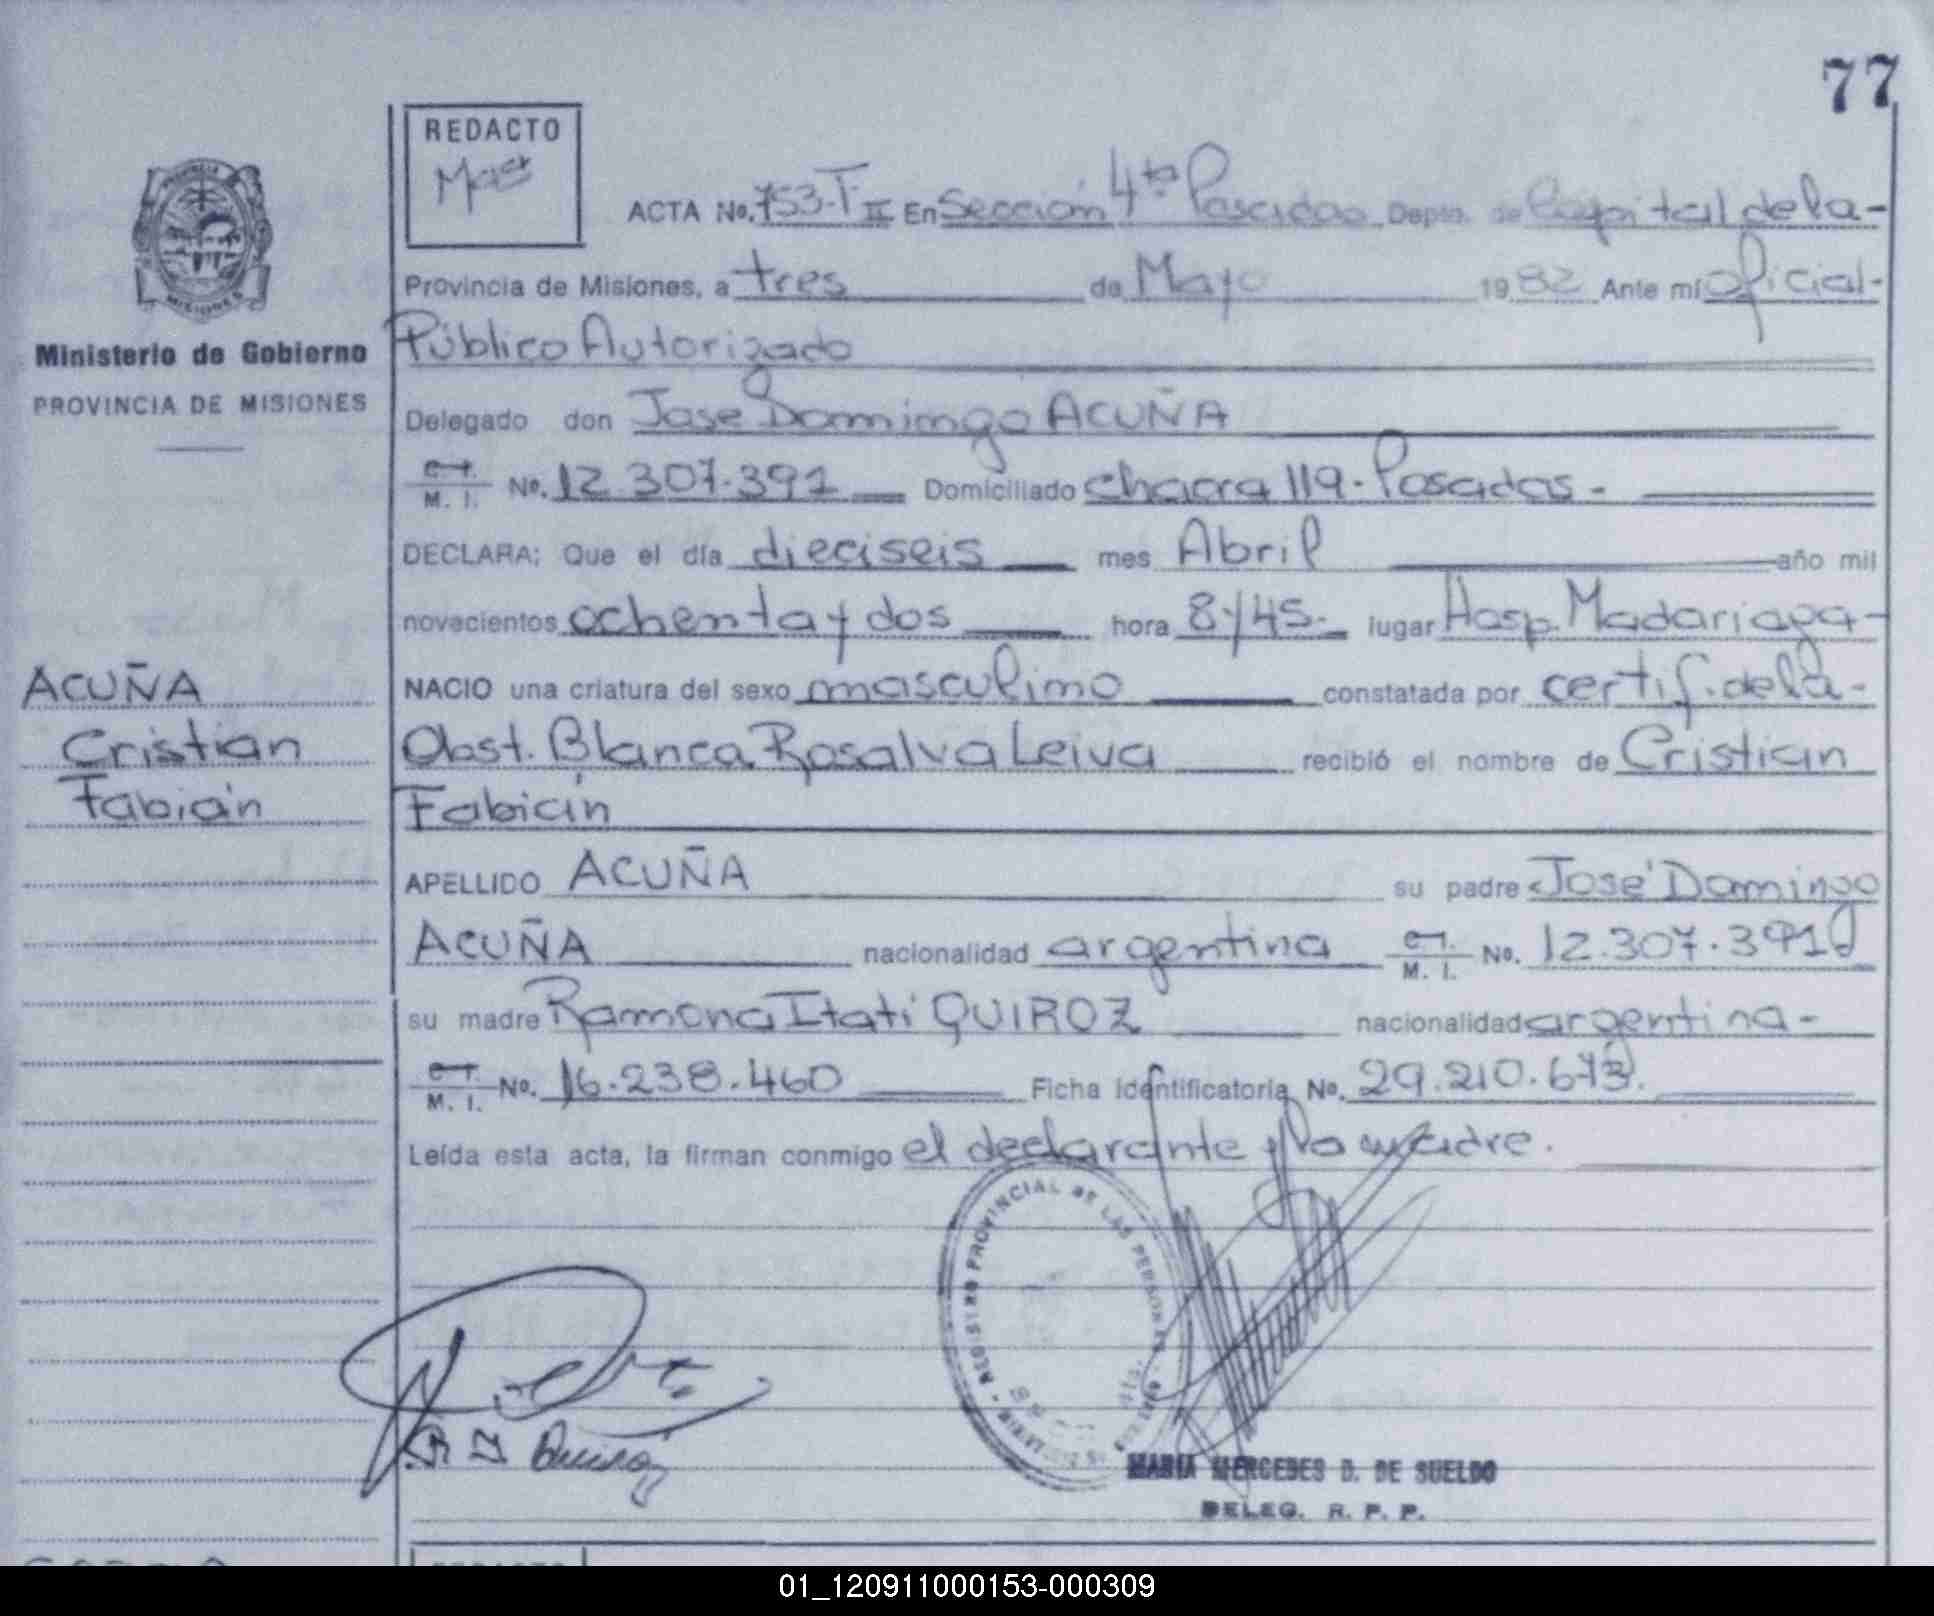 77
REDACTO
Mas
ACTA No. 753-T II En Sección 4ta Posadas Depto. de Capital de la-
Provincia de Misiones, a tres de Mayo 1982 Ante mí Oficial-
Público Autorizado
Delegado don Jose Domingo ACUÑA
M. I. No. 12.307.391 Domiciliado chacra 119 - Posadas -
DECLARA: Que el día dieciseis mes Abril año mil
novecientos ochenta y dos hora 8y45- lugar Hosp. Madariaga-
NACIO una criatura del sexo masculino constatada por certif. de la-
Obst. Blanca Rosalva Leiva recibió el nombre de Cristian
Fabián
APELLIDO ACUÑA su padre José Domingo
ACUÑA nacionalidad argentina M. I. No. 12.307.391
su madre Ramona Itatí QUIROZ nacionalidad argentina-
M. I. No. 16.238.460 Ficha identificatoria No. 29.210.673.
Leída esta acta, la firman conmigo el declarante y la madre.
PROVINCIA
MISIONES
Ministerio de Gobierno
PROVINCIA DE MISIONES
ACUÑA
Cristian
Fabián
REGISTRO PROVINCIAL DE LAS PERSONAS
R I Quiroz
MARIA MERCEDES D. DE SUELDO
DELEG. R. P. P.
01_120911000153-000309